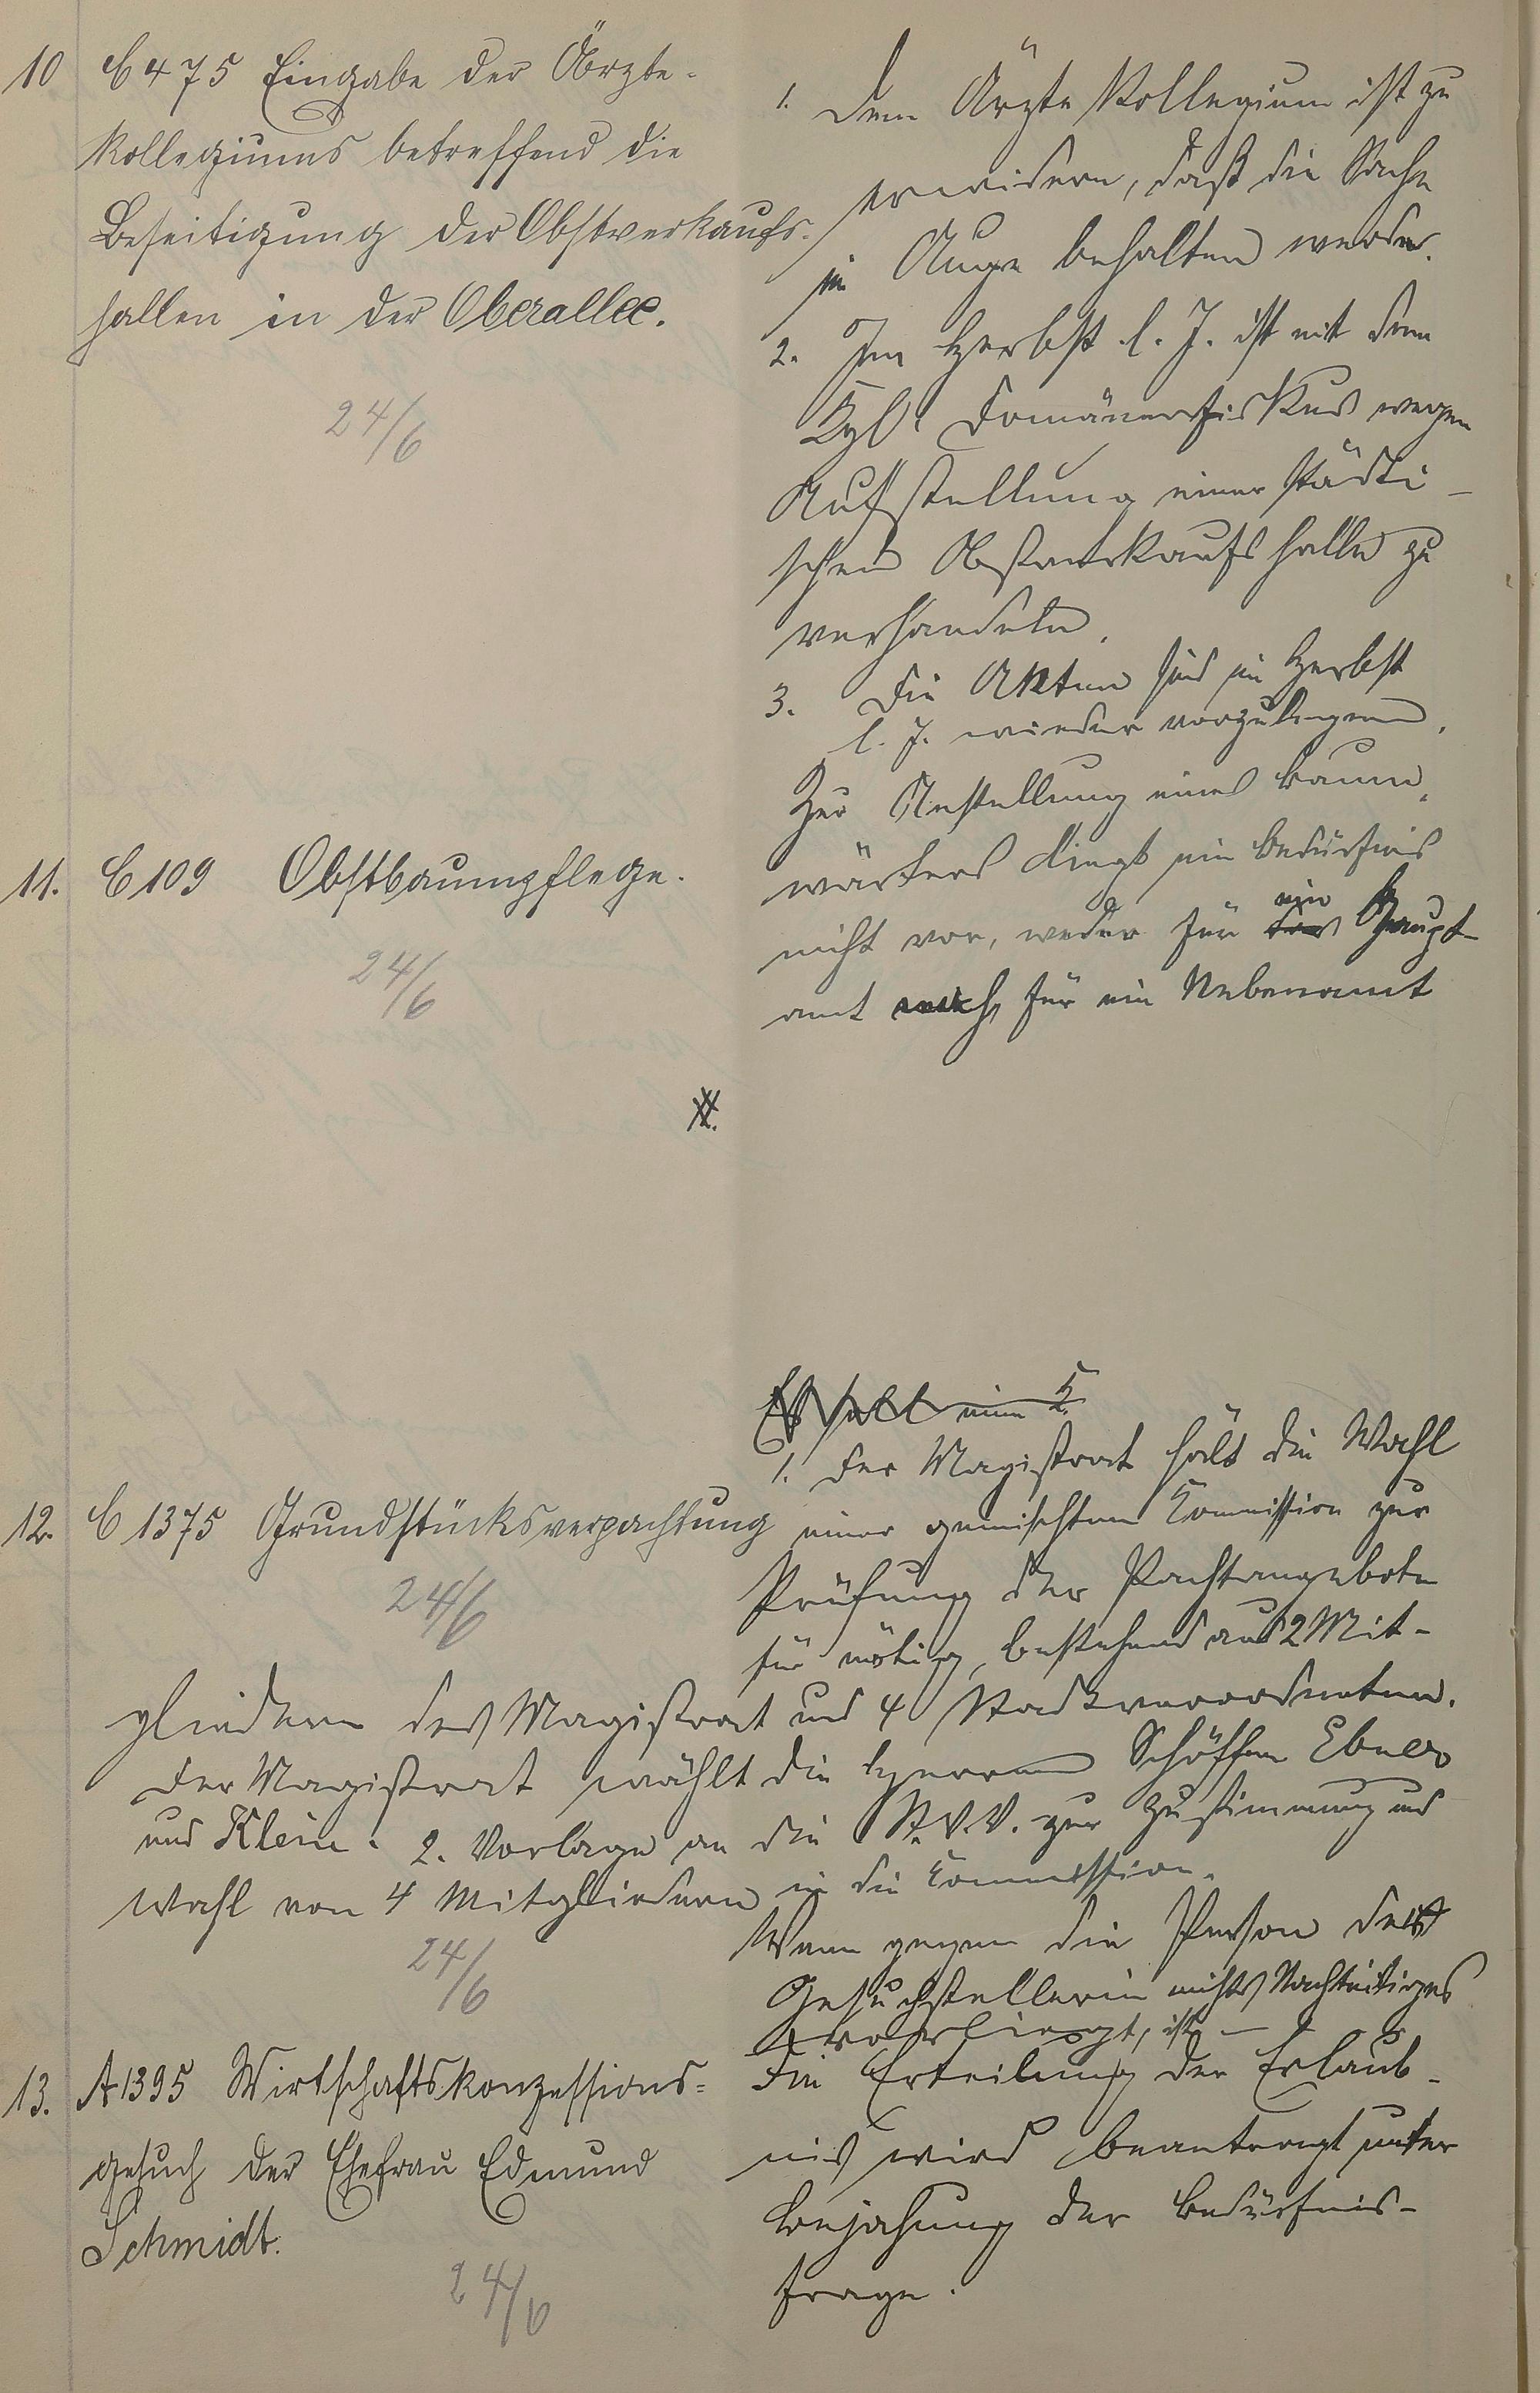 10 C 475 Eingabe der Ärzte-
kollegiums betreffend die
Beseitigung der Obstverkaufs-
hallen in der Oberallee.
24/6
1. Dem Ärzte Kollegium ist zu
erwidern, daß die Sache
im Auge behalten werde.
2. Im Herbst l. J. ist mit dem
Kgl. Domänenfiskus wegen
Aufstellung einer städti-
schen Obstverkaufshalle zu
verhandeln.
3. Die Akten sind im Herbst
l. J. wieder vorzulegen.
11. C 109 Obstbaumpflege.
24/6
Zur Anstellung eines Baum-
wärters liegt ein Bedürfnis
nicht vor, weder für ein Haupt-
amt noch für ein Nebenamt
Es soll eine K.
12. C 1375 Grundstücksverpachtung
24/6
1. Der Magistrat hält die Wahl
einer gemischten Kommission zur
Prüfung der Pachtangebote
für nötig, bestehend aus 2 Mit-
gliedern des Magistrat und 4 Stadtverordneten.
Der Magistrat wählt die Herren Schöffen Ebner
und Klein. 2. Vorlage an die St.V.V. zur Zustimmung und
Wahl von 4 Mitgliedern in die Kommission.
24/6
13. A 1395 Wirtschaftskonzessions-
gesuch der Ehefrau Edmund
Schmidt.
24/6
Wenn gegen die Person der
Gesuchstellerin nichts Nachteiliges
vorliegt, ist
Die Erteilung der Erlaub-
nis wird beantragt unter
Bejahung der Bedürfnis-
frage.